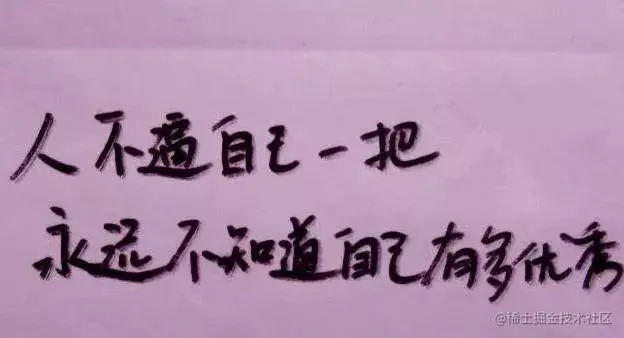 人不逼自己一把
永远不知道自己有多优秀
@稀土掘金技术社区